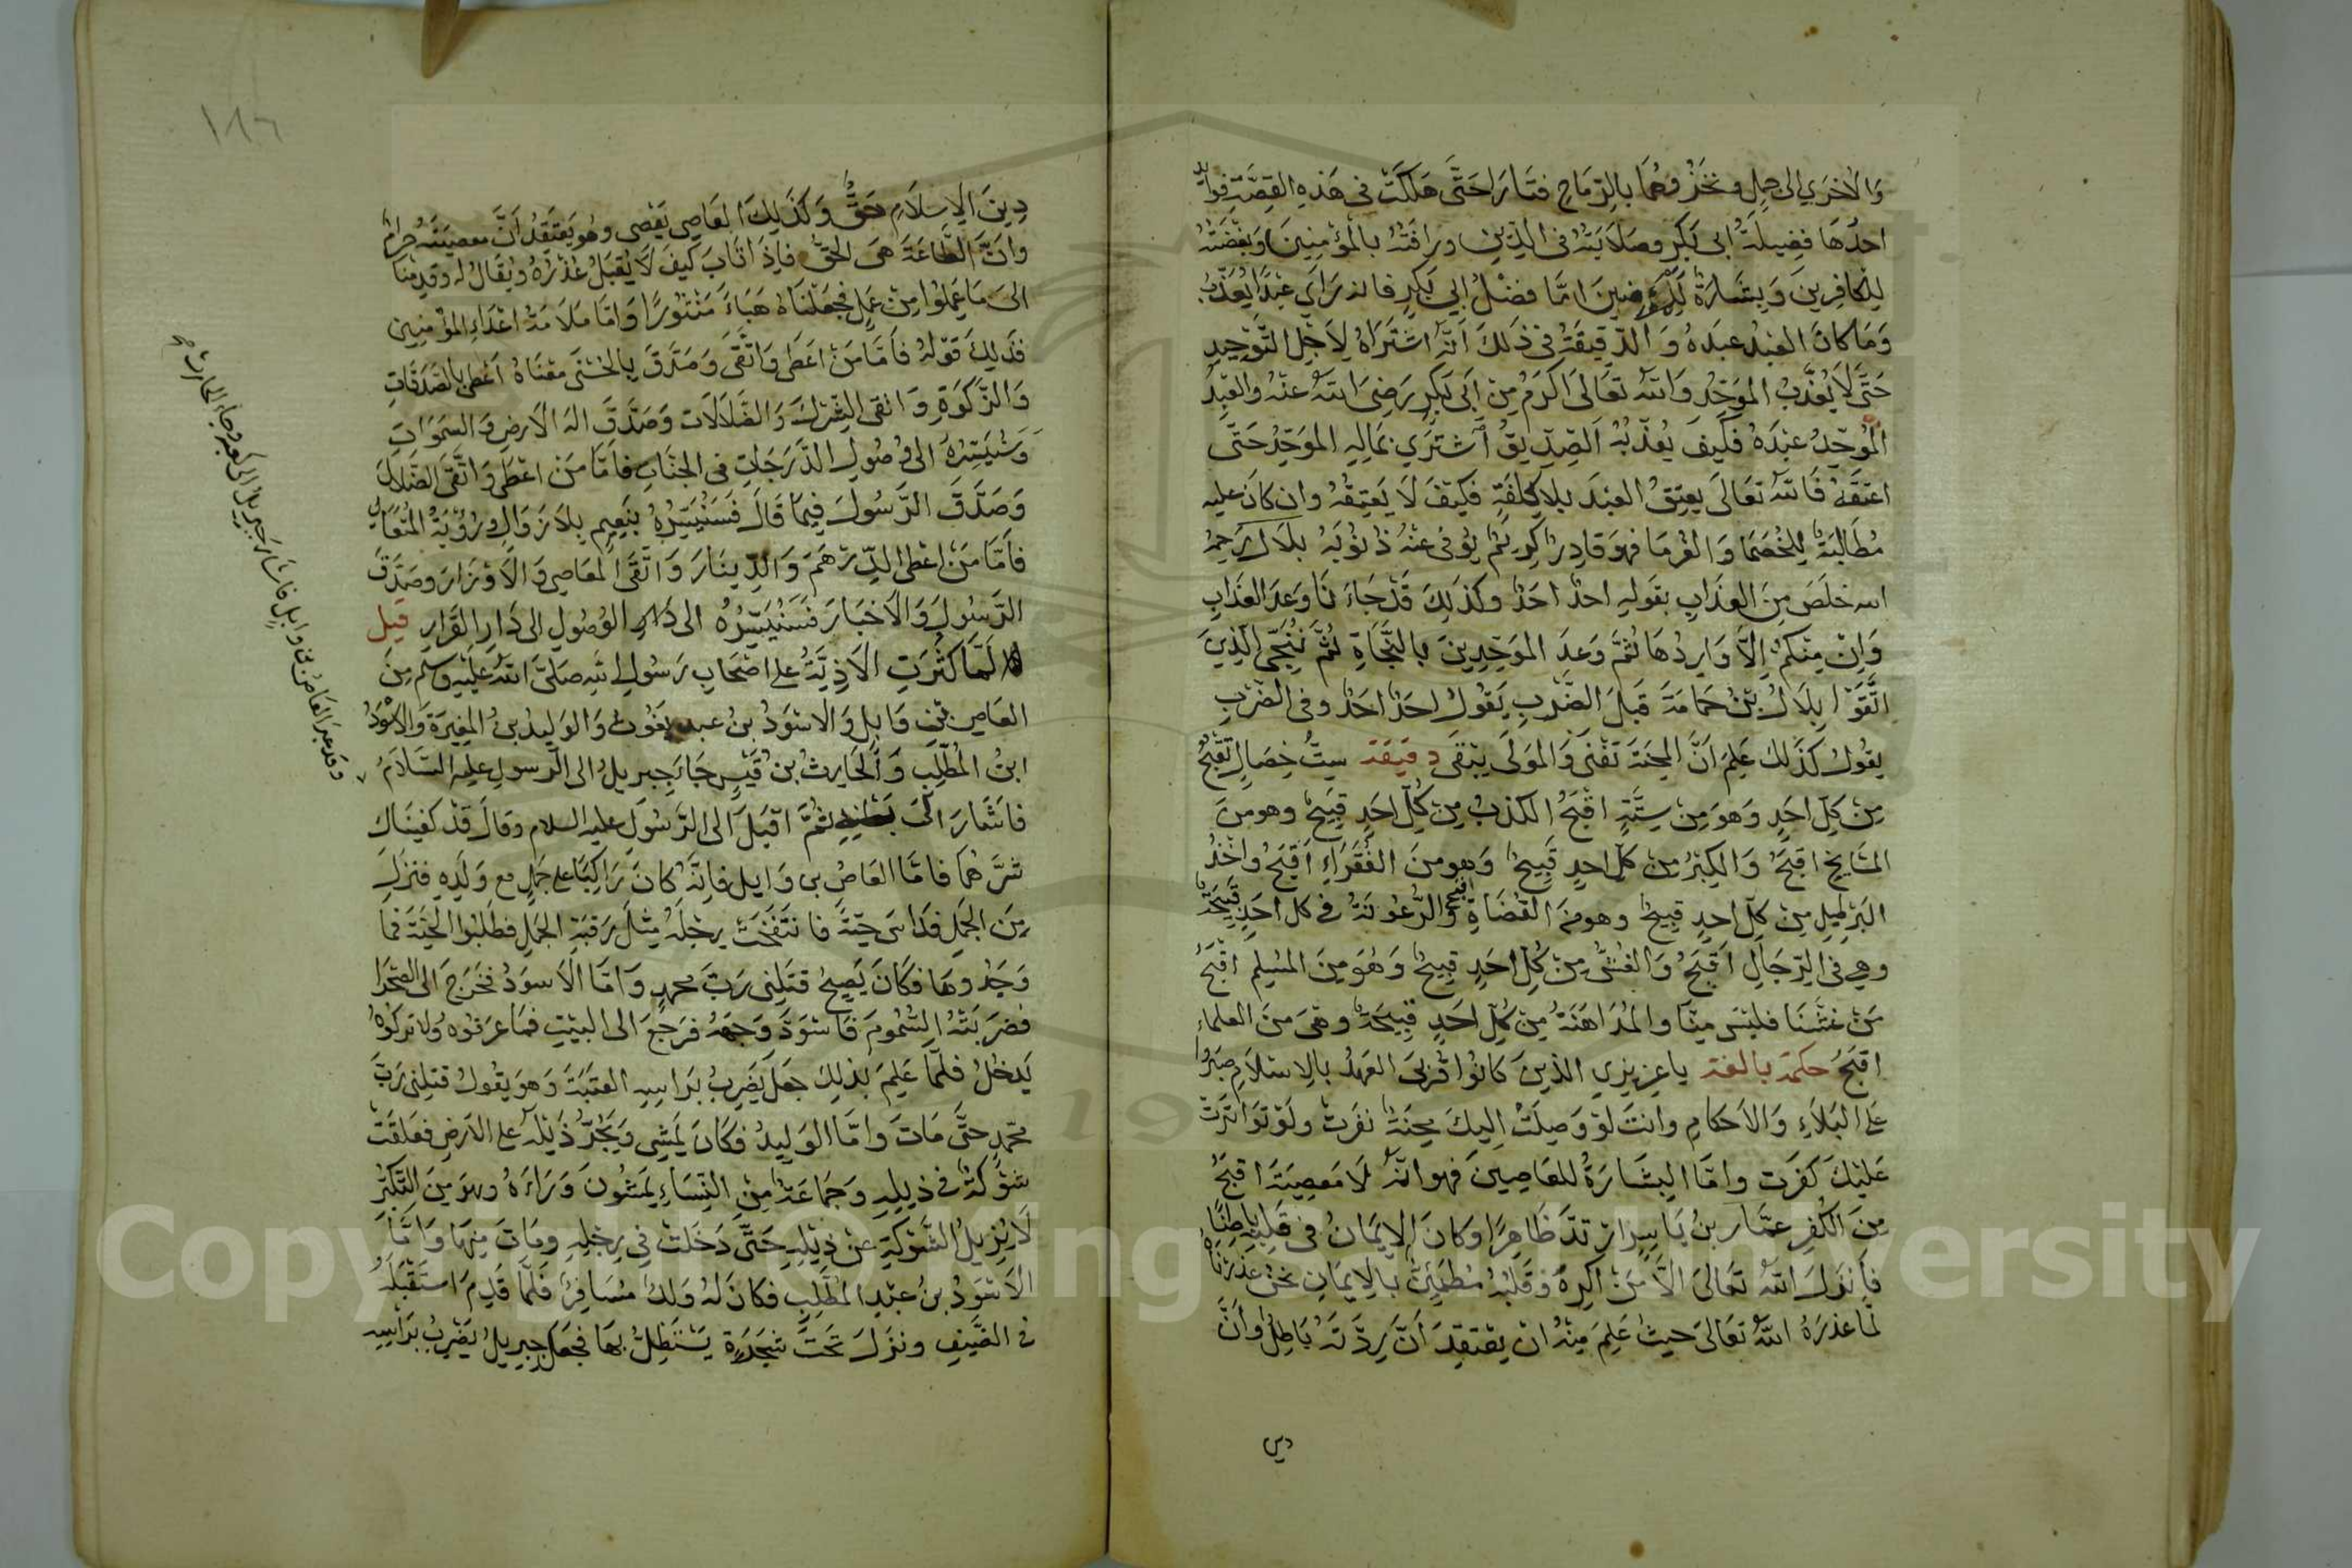 وَالاخرَي الى جمل ونخزوهما بالرماح فتارا حَتَّى هَلكَتْ في هَذِهِ القِصَّةِ فوائد
احدُها فضِيلَةُ ابى بَكْرٍ وصَلَابَتُهُ في الدِّينِ ورافَتُهُ بالمُؤمِنِينَ وَبغْضَتُهُ
لِلكَافِرِينَ وَبِشَارَةٌ لِلْمُؤمِنِينَ امَّا فضْلُ ابي بَكْرٍ فانه رَاَي عَبْدًا يُعَذَّبُ
وَمَا كانَ العَبْدُ عبدَهُ وَالدَّقِيقَةُ في ذَلكَ اَنَّهُ اشْتَرَاهُ لِاَجْلِ التَّوْحِيدِ
حَتَّى لَا يُعَذَّبُ الموَحِّدُ وَاللهُ تعَالىَ اكرَمُ مِنْ اَبى بَكْرٍ رَضِىَ اللهُ عنْهُ والعَبْدُ
الموُحِّدُ عبْدَهُ فَكيفَ يُعَذِّبُهُ اَلصِّدِّيقُ اَشترَي بمَالِهِ الموَحِّدُ حَتَّى
اعتَقَهُ فَاللهُ تعَالىَ يعتِقُ العبْدَ بِلا كِلفَةٍ فكَيْفَ لَا يَعْتِقُهُ وان كانَ عليه
مُطَالبَةٌ لِلخُصَمَا وَالغُرمَا فهوَ قادِرٌ كرِيمٌ يوُفى عنْهُ ذنُوُبَهُ بلَالٌ رَحِمَهُ
الله خلَصَ مِنَ العذَابِ بقَولِهِ احدٌ احَدٌ وكذلِكَ قَدْ جَاءَنَا وَعدَ العَذَابِ
وَاِنْ مِنكُمْ اِلَّا وَارِدُهَا ثُمَّ وَعدَ الموَحِّدِينَ بالنَّجَاةِ ثُمَّ نُنَجّى الّذِينَ
اتَّقَوْا بِلَالُ بْنُ حَمامَةَ قبْلَ الضَّرْبِ يَقُولُ احَدٌ احَدٌ وفى الضَّرْبِ
يقُولُ كَذَلكَ عَلِمَ اَنَّ المِحنَةَ تفْنَى وَالموْلَى يَبْقَى دقِيقَة سِتُّ خِصَالٍ تقْبُحُ
مِنْ كلِّ احَدٍ وَهوَ مِنْ سِتَّةٍ اقْبَحُ الكذبُ مِنْ كُلِّ احَدٍ قبِيحٌ وهو مِنَ
المشَايخِ اقبَحُ وَالكِبْرُ مِنْ كلِّ احدٍ قَبِيحٌ وَهو مِنَ الفُقَرَاءِ اَقْبَحُ واخْذُ
البَرْطِيلِ مِنْ كلِّ احدٍ قبِيحٌ وهو مِنَ القُضَاةِ اقبح وَالرُّعُونَةُ في كل احَدٍ قبِيحَةٌ
وهي في الرِّجَالِ اَقْبَحُ وَالغِشُّ مِنْ كُلِّ احَدٍ قبِيحٌ وَهُوَ مِنَ المُسْلِمِ اقْبَحُ
مَنْ غشَّنَا فليْسَ مِنَّا والمُدَاهَنَةُ مِنْ كُلِّ احَدٍ قبِيحَةٌ وهىَ مِنَ العلماءِ
اقبَحُ حكمَة بالغَة ياعزِيزي الذينَ كانُوا قُرْبىَ العَهْدُ بالِاسْلَامِ صَبَرُوا
عَلى البَلَاءِ وَالاَحكامِ وانتَ لوْ وَصلَتْ اليكَ مِحنَةٌ نفَرتَ ولَوْ تَوَاترَتْ
عَلَيْكَ كفَرت وامَّا البِشَارَةُ للعَاصِينَ فهو انَّهُ لَا مَعصِيَةَ اقبَحُ
مِنَ الكُفْرِ عمَّار بنُ يَاسِر ارْتَدَّ ظَاهِرًا وكانَ الايمَانُ في قلبِهِ بَاطِنًا
فاَنزَلَ اللهُ تعَالىَ الَّا مَنْ اكرِهَ وَقَلبُهُ مُطمَئِنٌّ بالِايمَانِ نحْنُ عذَرْنَاهُ
لما عذرَهُ اللهُ تعَالىَ حيثُ عَلِمَ مِنْهُ انْ يعْتقِدَ اَنَّ رِدَّتَهُ بَاطِلٌ وَأنَّ
دين
١٨٦
دِينَ الِاسْلَامِ حَقٌّ وَكَذَلِكَ العَاصِي يَعْصِى وهُو يَعتَقِدُ اَنَّ معصِيَتَهُ حرامٌ
وانَّ الطَّاعَةَ هىَ الحقُّ فاِذَا تَابَ كيفَ لَا يُقبَلُ عُذْرُهُ ويُقَالُ له وقدِمْنَا
الىَ مَا عَمِلُوا مِنْ عَمَلٍ فجَعَلْنَاهُ هَبَاءً مَنْثُورًا وَامَّا مَلَامَةُ اعْدَاءِ المُؤْمِنِين
فذَلِكَ قوْلهُ فاَمَّا مَنْ اعْطَى وَاتَّقَى وَصَدَّقَ بِالحُسْنَى مَعْنَاهُ اَعْطى بالصَّدَقَاتِ
وَالزَّكوَةِ وَاتقى الشِّرْكَ وَالضَّلَالَات وَصَدَّقَ الهَ الَارْضِ وَالسَّمَوَاتِ
وَسَنُيَسِّرُهُ الى وُصُولِ الدَّرَجَاتِ في الجنَّاتِ فاَمَّا مَن اعْطَى وَاتَّقى الضَّلَالَ
وَصَدَّقَ الرَّسُولَ فيمَا قَالَ فَسَنُيَسِّرُهُ بنَعِيمٍ بِلَا زَوَالٍ وَرُؤْيَةُ المُتَعَالِ
فاَمَّا مَنْ اعْطى الدِّرْهَمَ وَالدِّينَارَ وَاتَّقَى المعَاصِي وَالاَوْزَارَ وصَدَّقَ
الرَّسُولَ وَالاَخبَارَ فَسَنُيَسِّرُهُ الى الوُصُولِ الى دَارِ القَرَارِ قيل
لَمَّا كثُرَتِ الاَذِيَّةُ على اصْحَابِ رَسُولِ اللهِ صَلىَّ اللهُ عَلَيْهِ وسلم مِنَ
العَاص بْنِ وَايل وَالاسْوَدُ بنُ عبد يغُوث وَالوَلِيدُ بنُ المغِيرَة وَالاسْوَدُ
ابنُ المُطَّلِب وَالحَارِثُ بن قَيْسٍ جَاءَ جِبريلُ الى الرّسولِ عليه السَّلَامُ
فاشَارَ الىَ ثمَّ اقبَلَ الى الرَّسُولِ عليه السلام وقالَ قدْ كفيْنَاك
شرَّهُمَا فامَّا العَاصُ بن وَايل فاِنَّهُ كانَ رَاكِبًا على جَمَلٍ مع وَلَدِهِ فنزَل
مِنَ الجمَلِ فداسَ حيّةً فانتَفَخَتْ رِجْلُهُ مِثْلَ رَقبَةِ الجمَلِ فطَلَبُوا الحَيَّةَ فما
وَجَدُوهَا فكَانَ يَصِيحُ قتلَنى رَبُّ محمدٍ وَامَّا الاَسوَدُ فخَرَجَ الى الصَّحْرا
فضرَبَتْهُ السُّمُومُ فَاسْوَدَّ وَجهُهُ فرَجَعَ الى البيْتِ فمَا عرَفوُه ولا ترَكُوهُ
يَدخُلُ فلمَّا عَلِمَ بذلِكَ جعَلَ يَضْرِبُ برَاسِهِ العتَبَةَ وَهو يقُولُ قتلنى رَبُّ
محمّدٍ حتَّى مَاتَ وَامَّا الوَلِيدُ فكَانَ يَمْشِى وَيَجُرُّ ذَيْلَهُ على الارْضِ فعَلقَتْ
شَوْكَةٌ في ذيْلِهِ وَجَمَاعَةٌ مِنَ النِّسَاءِ يَمشُونَ وَرَاءَهُ وهوَ مِنَ التَّكبُّرِ
لَا يُزيلُ الشَّوْكَةَ عنْ ذَيْلِهِ حَتَّى دَخَلَتْ في رِجْلِهِ ومَاتَ مِنهَا وَامَّا
الاَسْوَدُ بنُ عبْدِ المُطَّلِبِ فكَانَ لَهُ وَلدٌ مُسَافِرٌ فَلَمّا قَدِمَ استَقْبَلَهُ
في الصَّيفِ ونزَلَ تحتَ شَجَرَةٍ يَستَظِلُّ بهَا فجعَلَ جبريلُ يَضرِبُ برَاسِهِ